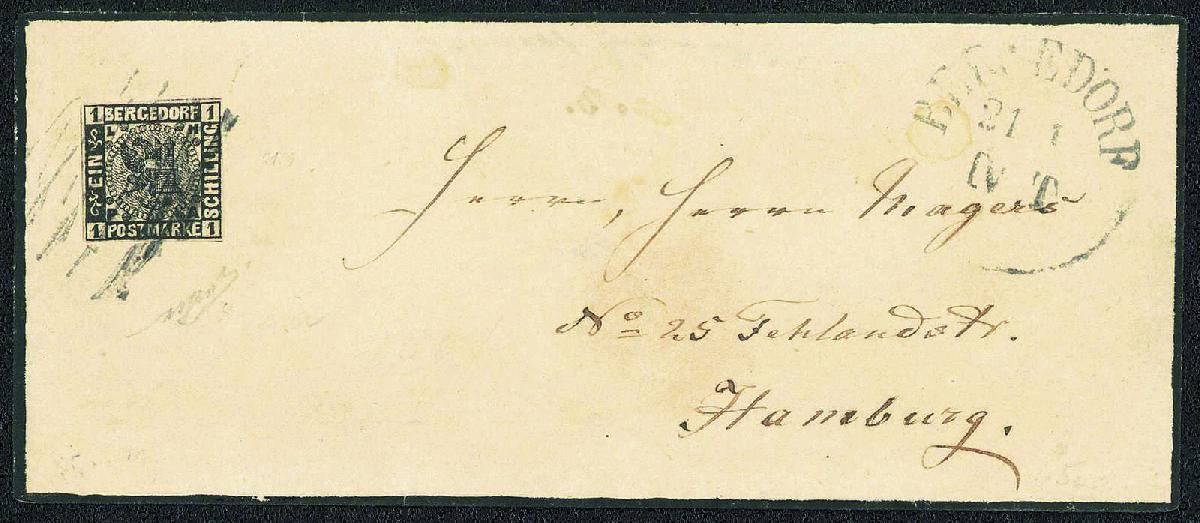 1 BERGEDORF 1
EIN
SCHILLING
L H
P A
1 POSTMARKE 1
BERGEDORF
21 1
IV T
Herrn, Herrn Magers
No 25 Fehlandstr.
Hamburg.